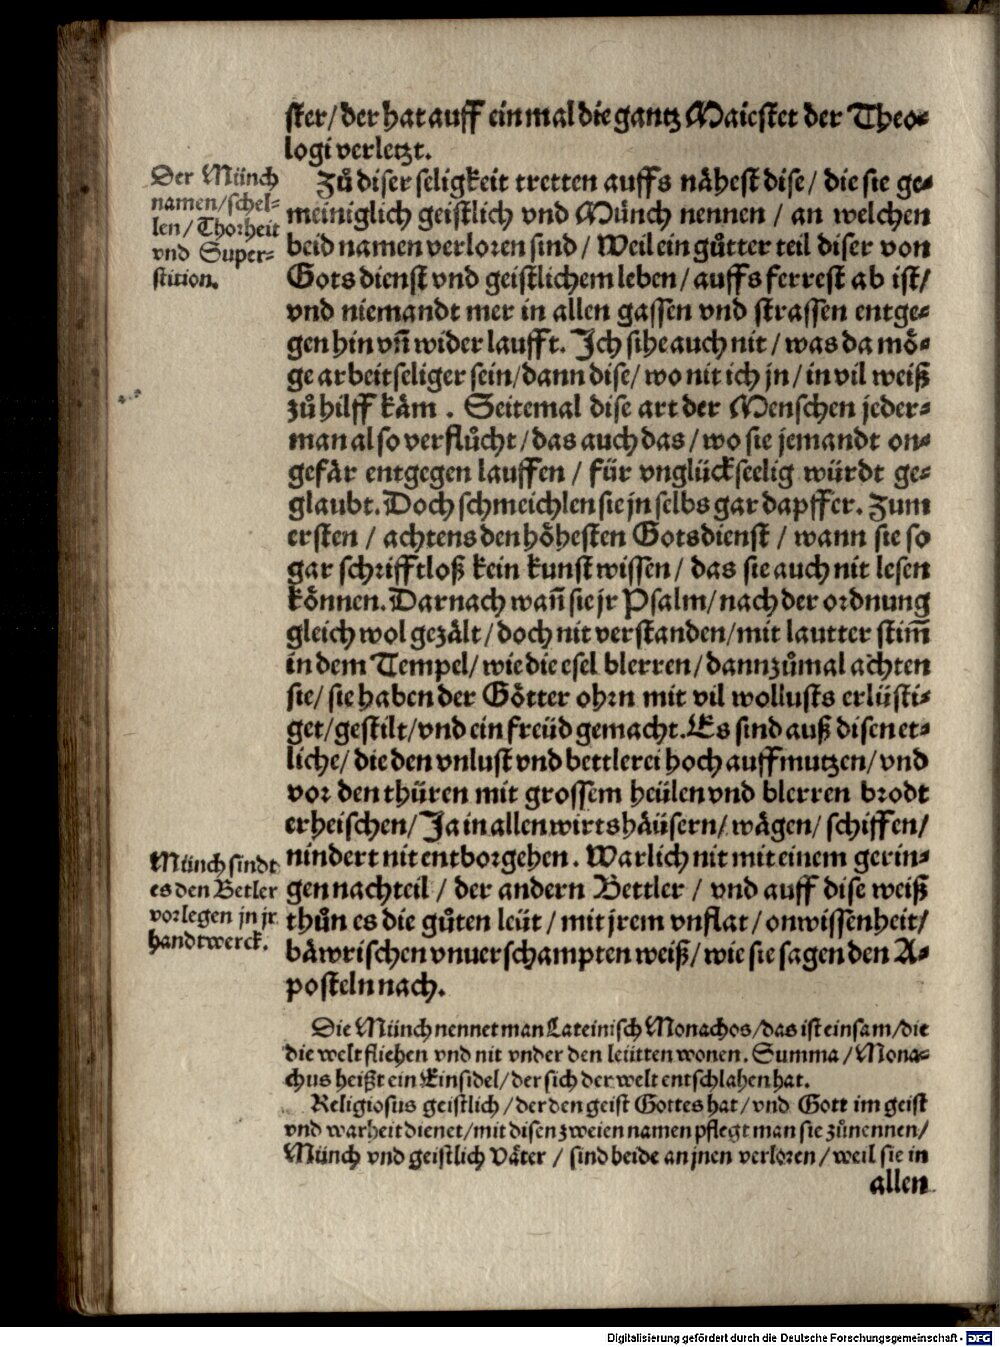 ster/ der hat auff ein mal die gantz Maiestet der Theo-
logi verletzt.
Der Münch
namen/ schel-
len/ Thorheit
vnd Super-
stition.
Zů diser seligkeit tretten auffs nähest dise/ die sie ge-
meiniglich geistlich vnd Münch nennen / an welchen
beid namen verloren sind/ Weil ein gůtter teil diser von
Gots dienst vnd geistlichem leben/ auffs ferrest ab ist/
vnd niemandt mer in allen gassen vnd strassen entge-
gen hin vn̄ wider laufft. Ich sihe auch nit/ was da mö-
ge arbeitseliger sein/ dann dise/ wo nit ich jn/ in vil weiß
zů hilff käm. Seitemal dise art der Menschen jeder-
man also verflůcht/ das auch das/ wo sie jemandt on-
gefär entgegen lauffen / für vnglückseelig würdt ge-
glaubt. Doch schmeichlen sie jn selbs gar dapffer. Zum
ersten / achtens den höhesten Gotsdienst / wann sie so
gar schrifftloß kein kunst wissen/ das sie auch nit lesen
können. Darnach wan̄ sie jr Psalm/ nach der ordnung
gleich wol gezält/ doch nit verstanden/ mit lautter stim̄
in dem Tempel/ wie die esel blerren/ dannzůmal achten
sie/ sie haben der Götter ohrn mit vil wollusts erlüsti-
get/ gestilt/ vnd ein freüd gemacht. Es sind auß disen et-
liche/ die den vnlust vnd bettlerei hoch auffmutzen/ vnd
vor den thüren mit grossem heülen vnd blerren brodt
erheischen/ Ja in allen wirtshäüsern/ wägen/ schiffen/
nindert nit entborgehen. Warlich nit mit einem gerin-
gen nachteil / der andern Bettler / vnd auff dise weiß
thůn es die gůten leüt / mit jrem vnflat/ onwissenheit/
bäwrischen vnuerschampten weiß/ wie sie sagen den A-
posteln nach.
Münch sindt
es den Betler
vorlegen jn jr
handtwerck.
Die Münch nennet man Lateinisch Monachos/ das ist einsam/ die
die welt fliehen vnd nit vnder den leütten wonen. Summa / Mona-
chus heißt ein Einsidel/ der sich der welt entschlahen hat.
Religiosus geistlich / der den geist Gottes hat/ vnd Gott im geist
vnd warheit dienet/ mit disen zweien namen pflegt man sie zůnennen/
Münch vnd geistlich Väter / sind beide an jnen verloren/ weil sie in
allen
Digitalisierung gefördert durch die Deutsche Forschungsgemeinschaft - DFG